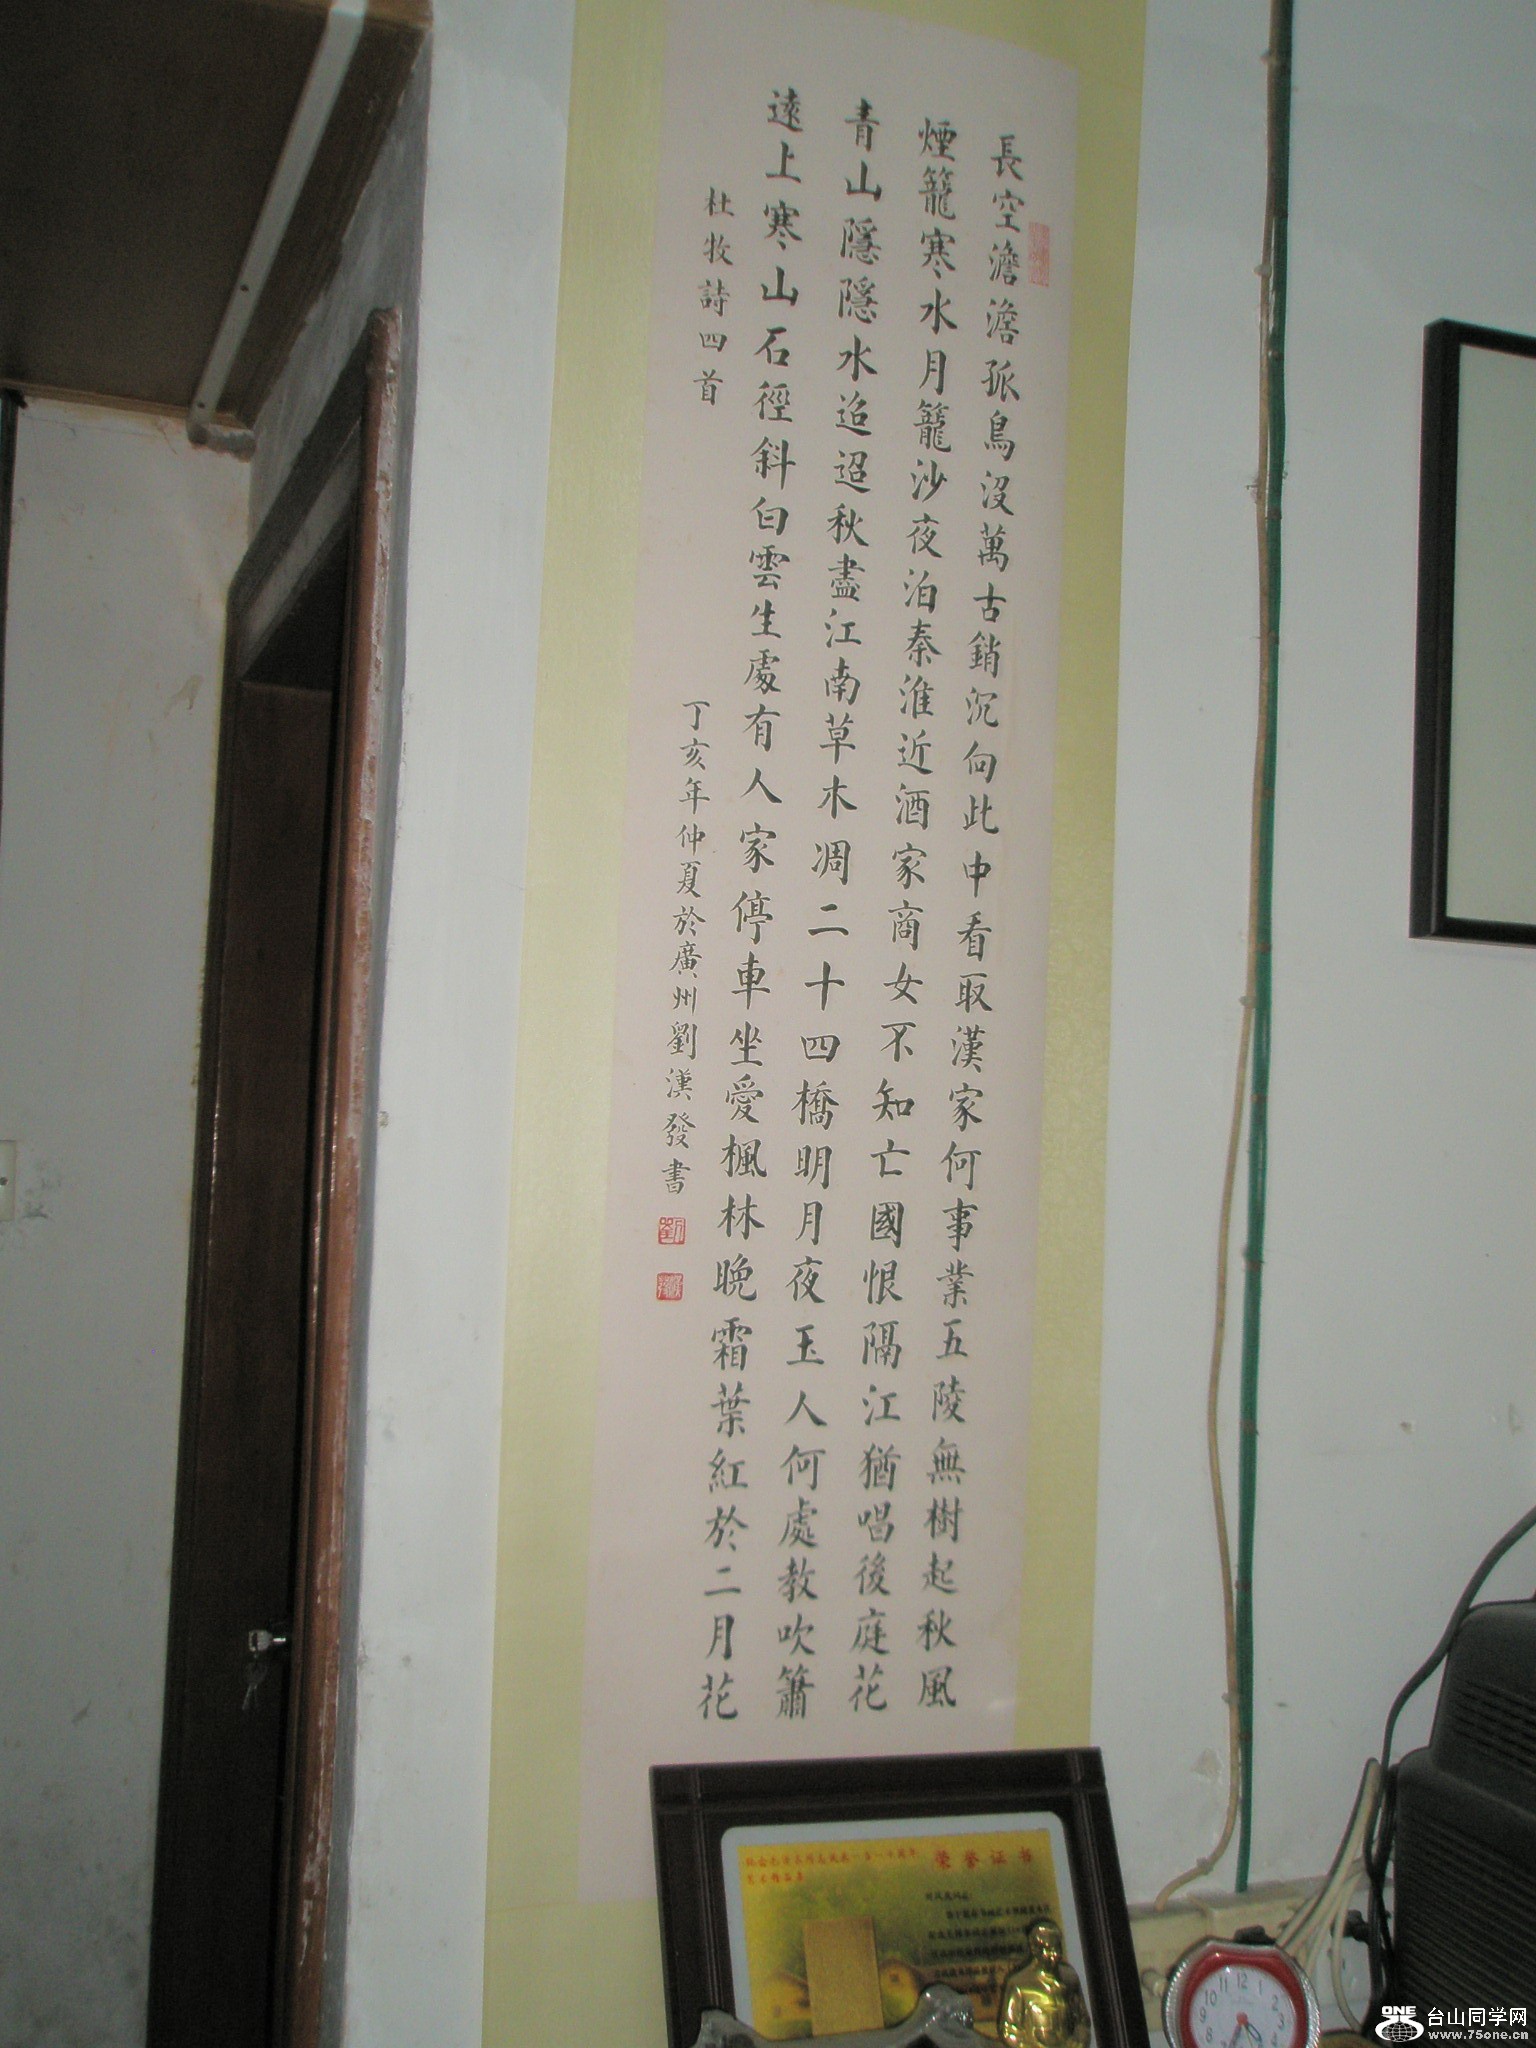 長空澹澹孤鳥沒萬古銷沉向此中看取漢家何事業五陵無樹起秋風
煙籠寒水月籠沙夜泊秦淮近酒家商女不知亡國恨隔江猶唱後庭花
青山隱隱水迢迢秋盡江南草木凋二十四橋明月夜玉人何處教吹簫
遠上寒山石徑斜白雲生處有人家停車坐愛楓林晚霜葉紅於二月花
杜牧詩四首
丁亥年仲夏於廣州劉漢發書
荣誉证书
12 1 2 3
11 10 9 8
ONE 台山同学网
www.75one.cn